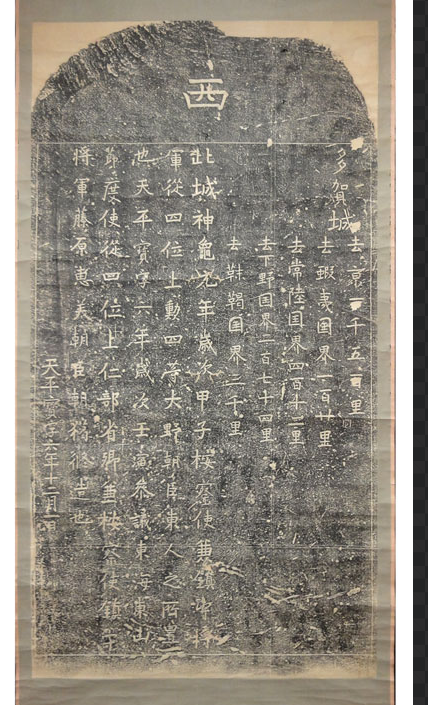 西
多賀城
去京一千五百里
去蝦夷国界一百廿里
去常陸国界四百十二里
去下野国界二百七十四里
去靺鞨国界三千里
此城神龜元年歳次甲子按察使兼鎮守將
軍從四位上勳四等大野朝臣東人之所置
也天平寶字六年歳次壬寅參議東海東山
節度使從四位上仁部省卿兼按察使鎮守
將軍藤原恵美朝臣朝獦修造也
天平寶字六年十二月一日